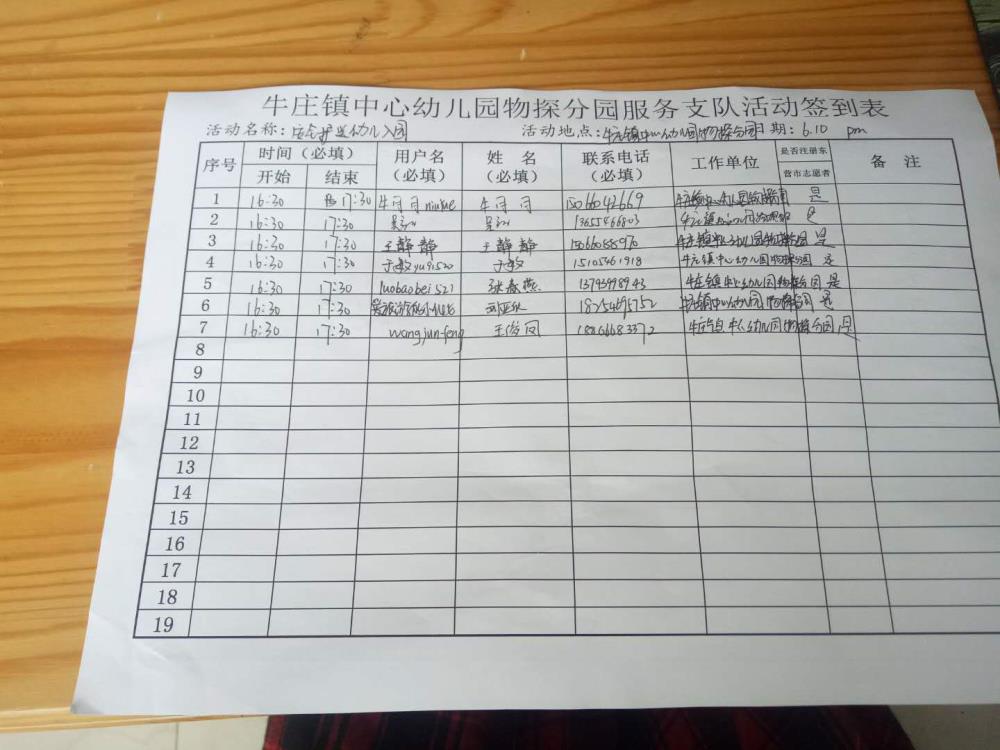 牛庄镇中心幼儿园物探分园服务支队活动签到表
活动名称：安全护送幼儿入园 活动地点：牛庄镇中心幼儿园物探分园 日期：6.10 pm
序号 时间（必填） 用户名（必填） 姓名（必填） 联系电话（必填） 工作单位 是否注册东营市志愿者 备注
开始 结束
1 16:30 17:30 牛司司 牛司司 15066042669 是
2 16:30 17:30 13655466803 是
3 16:30 17:30 王静静 王静静 15066088970 牛庄镇中心幼儿园物探分园 是
4 16:30 17:30 于敏yu91520 于敏 15105461918 牛庄镇中心幼儿园物探分园 是
5 16:30 17:30 luobaobei521 张春燕 13795998943 牛庄镇中心幼儿园物探分园 是
6 16:30 17:30 刘亚欣 18254695752 牛庄镇中心幼儿园物探分园 是
7 16:30 17:30 wangjun-feng 王俊凤 牛庄镇中心幼儿园物探分园 是
8
9
10
11
12
13
14
15
16
17
18
19